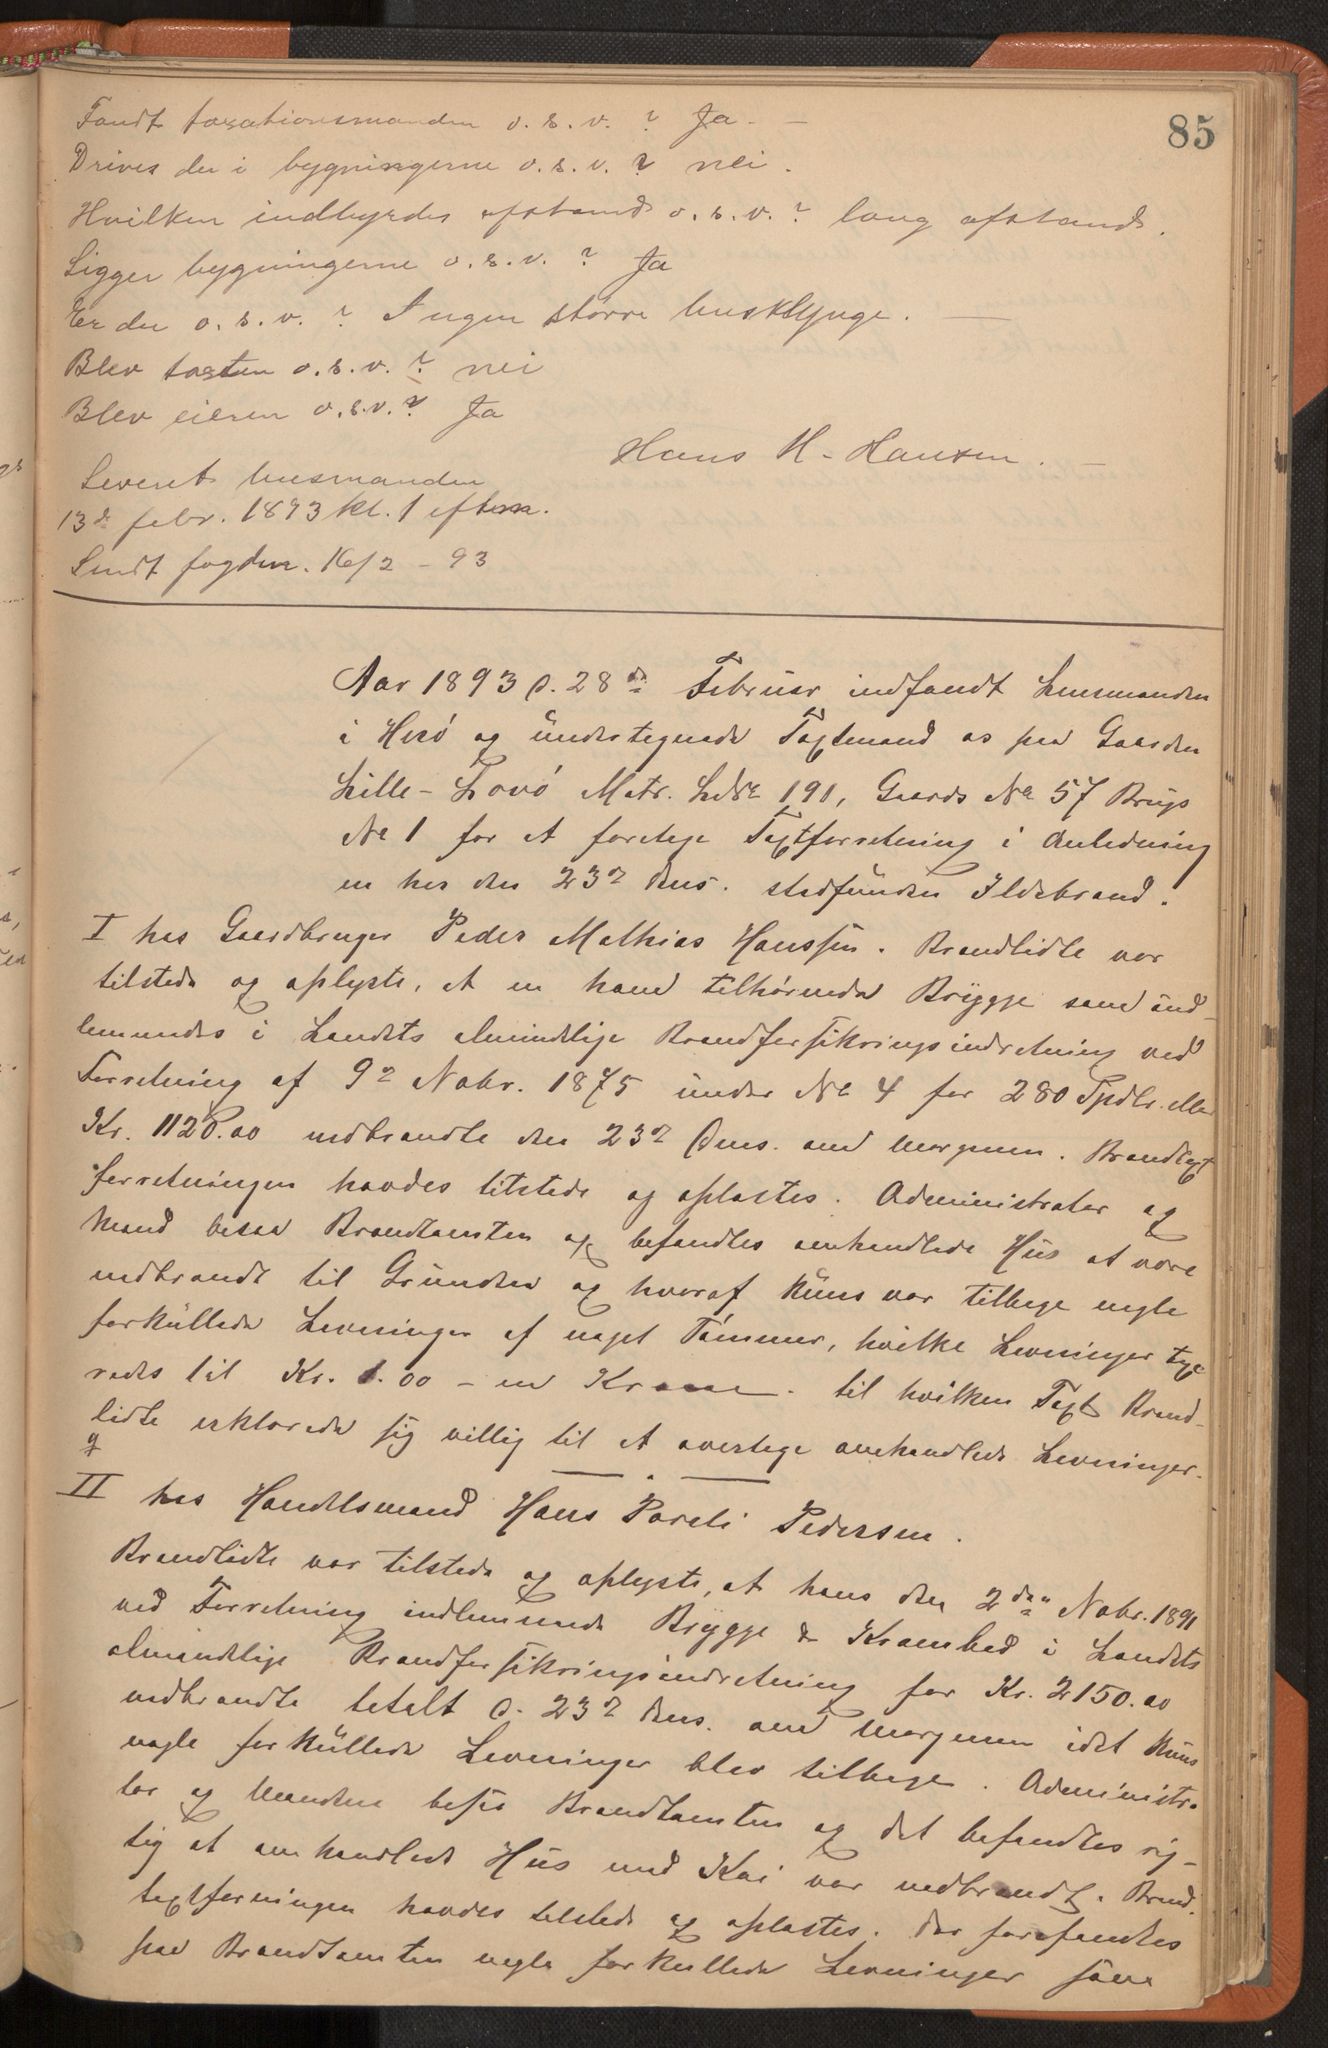 85
Fandt taxationsmanden o. s. v. ? Ja. —
Drives der i bygningerne o. s. v. ? nei.
Hvilken indbyrdes afstand o. s. v. ? lang afstand.
Ligger bygningerne o. s. v. ? Ja
Er der o. s. v. ? Ingen større husklynge. —
Blev taxten o. s. v. ? nei
Blev eieren o. s. v. ? Ja
Hans H. Hansen. —
Leveret lensmanden
13de febr. 1893 kl. 1 efterm.
Sendt fogden. 16/2 - 93
Aar 1893 d. 28de Februar indfandt Lensmanden
i Herø og undertegnede Taxtmænd os paa Gaarden
Lille-Tovø Matr. LNr 191, Gaards No 57 Brugs
No 1 for at foretage Taxtforretning i Anledning
en her den 23de ds. stedfunden Ildebrand.
I hos Gaardbruger Peder Mathias Hanssen. Brandlidte var
tilstede og oplyste, at en ham tilhørende Brygge som ind-
lemmedes i Landets almindelige Brandforsikringsindretning ved
Forretning af 9de Novbr. 1875 under No 4 for 280 Spdlr. eller
Kr. 1120.00 nedbrandte den 23de ds. om Morgenen. Brandtaxt
forretningen havdes tilstede og oplæstes. Administrator og
Mænd besaa Brandtomten og befandtes omhandlede Hus at være
nedbrandt til Grunden og hvoraf kuns var tilbage nogle
forkullede Levninger af noget Tømmer, hvilke Levninger taxe
redes til Kr. 1.00 - en Krone - til hvilken Taxt Brand-
lidte erklærede sig villig til at overtage omhandlede Levninger.
II hos Handelsmand Hans Pareli Pedersen.
Brandlidte var tilstede og oplyste, at hans den 2den Novbr. 1891
ved Forretning indlemmede Brygge & Krambod i Landets
almindelige Brandforsikringsindretning for Kr. 2150.00
nedbrandte totalt d. 23de ds. om Morgenen idet kuns
nogle forkullede Levninger blev tilbage. Administra
tor og Mændene besaa Brandtomten og det befandtes rig-
tig at omhandlede Hus med Kai var nedbrandt. Brand
taxtforningen havdes tilstede og oplæstes. Der forefandtes
paa Brandtomten nogle forkullede Levninger som